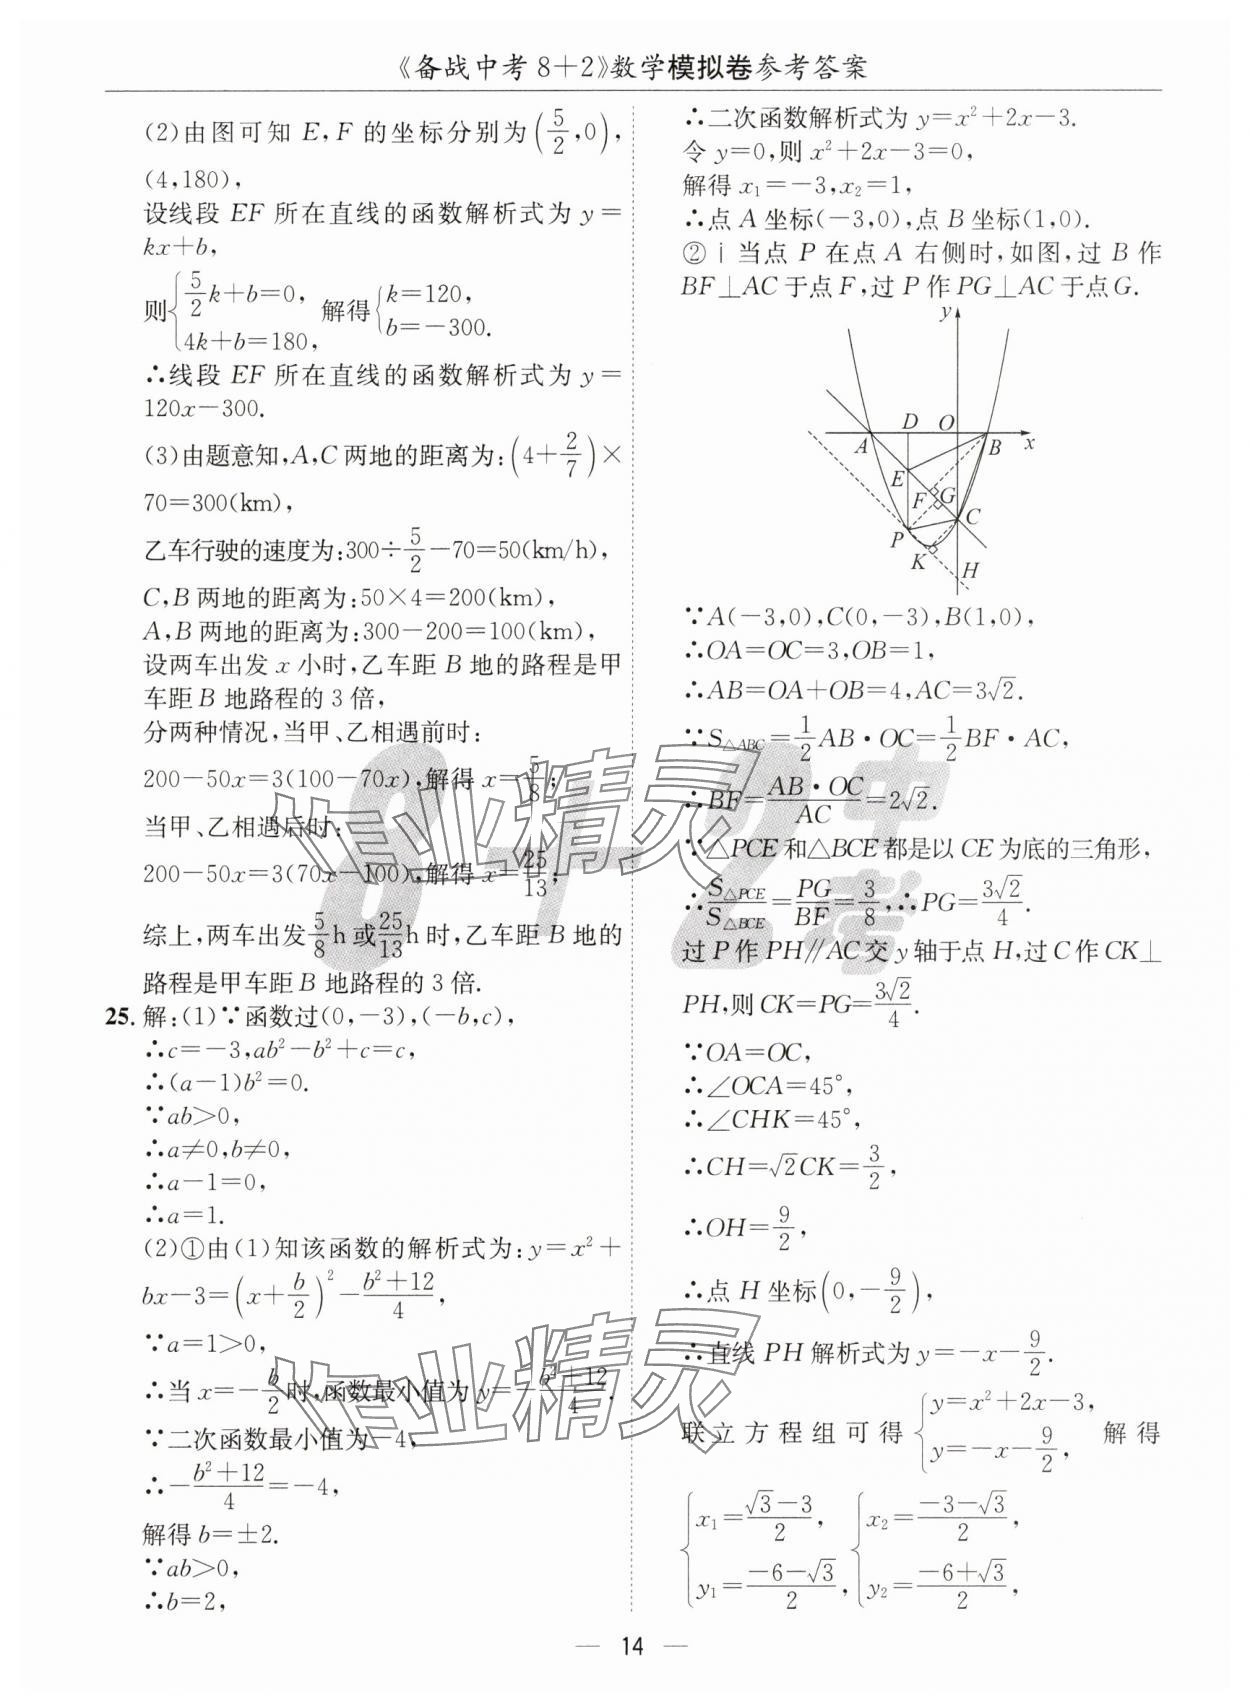 《备战中考8+2》数学模拟卷参考答案
(2)由图可知 E,F 的坐标分别为(5/2,0),
(4,180),
设线段 EF 所在直线的函数解析式为 y=
kx+b,
则{5/2k+b=0, 4k+b=180, 解得{k=120, b=-300.
∴线段 EF 所在直线的函数解析式为 y=
120x-300.
(3)由题意知,A,C 两地的距离为:(4+2/7)×
70=300(km),
乙车行驶的速度为:300÷5/2-70=50(km/h),
C,B 两地的距离为:50×4=200(km),
A,B 两地的距离为:300-200=100(km),
设两车出发 x 小时,乙车距 B 地的路程是甲
车距 B 地路程的 3 倍,
分两种情况,当甲、乙相遇前时:
200-50x=3(100-70x),解得 x=5/8;
当甲、乙相遇后时:
200-50x=3(70x-100),解得 x=25/13;
综上,两车出发5/8h或25/13h时,乙车距 B 地的
路程是甲车距 B 地路程的 3 倍.
25. 解:(1)∵函数过(0,-3),(-b,c),
∴c=-3,ab²-b²+c=c,
∴(a-1)b²=0.
∵ab>0,
∴a≠0,b≠0,
∴a-1=0,
∴a=1.
(2)①由(1)知该函数的解析式为:y=x²+
bx-3=(x+b/2)²-(b²+12)/4,
∵a=1>0,
∴当 x=-b/2时,函数最小值为 y=-(b²+12)/4.
∵二次函数最小值为-4,
∴-(b²+12)/4=-4,
解得 b=±2.
∵ab>0,
∴b=2,
∴二次函数解析式为 y=x²+2x-3.
令 y=0,则 x²+2x-3=0,
解得 x₁=-3,x₂=1,
∴点 A 坐标(-3,0),点 B 坐标(1,0).
②ⅰ当点 P 在点 A 右侧时,如图,过 B 作
BF⊥AC于点F,过P作PG⊥AC于点G.
y
D O
A B x
E
F G
C
P
K H
∵A(-3,0),C(0,-3),B(1,0),
∴OA=OC=3,OB=1,
∴AB=OA+OB=4,AC=3√2.
∵S△ABC=1/2AB·OC=1/2BF·AC,
∴BF=AB·OC/AC=2√2.
∵△PCE和△BCE都是以CE为底的三角形,
∴S△PCE/S△BCE=PG/BF=3/8,∴PG=3√2/4.
过P作PH∥AC交y轴于点H,过C作CK⊥
PH,则CK=PG=3√2/4.
∵OA=OC,
∴∠OCA=45°,
∴∠CHK=45°,
∴CH=√2CK=3/2,
∴OH=9/2,
∴点 H 坐标(0,-9/2),
∴直线 PH 解析式为 y=-x-9/2.
联立方程组可得{y=x²+2x-3, y=-x-9/2, 解得
{x₁=(√3-3)/2, y₁=(-6-√3)/2, {x₂=(-3-√3)/2, y₂=(-6+√3)/2,
14
作业精灵
作业精灵
8+2
中考